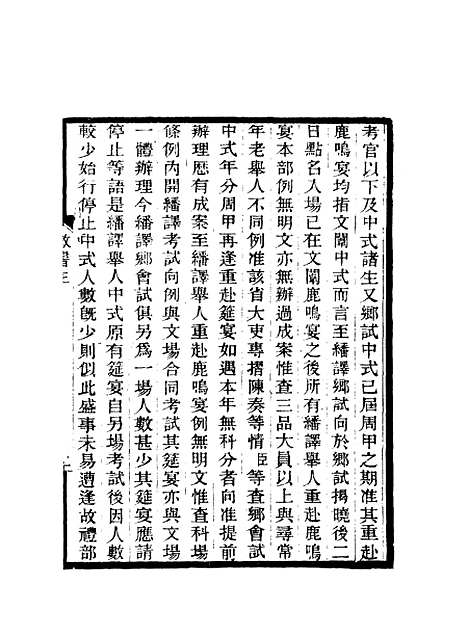 考官以下及中式諸生又鄉試中式已屆周甲之期准其重赴
鹿鳴宴均指文闈中式而言至繙譯鄉試向於鄉試揭曉後二
日點名入場已在文闈鹿鳴宴之後所有繙譯舉人重赴鹿鳴
宴本部例無明文亦無辦過成案惟查三品大員以上與尋常
年老舉人不同例准該省大吏專摺陳奏等情臣等查鄉會試
中式年分周甲再逢重赴筵宴如遇本年無科分者向准提前
辦理歷有成案至繙譯舉人重赴鹿鳴宴例無明文惟查科場
條例內開繙譯考試向例與文場合同考試其筵宴亦與文場
一體辦理今繙譯鄉會試俱另為一場人數甚少其筵宴應請
停止等語是繙譯舉人中式原有筵宴自另場考試後因人數
較少始行停止中式人數既少則似此盛事未易遭逢故禮部